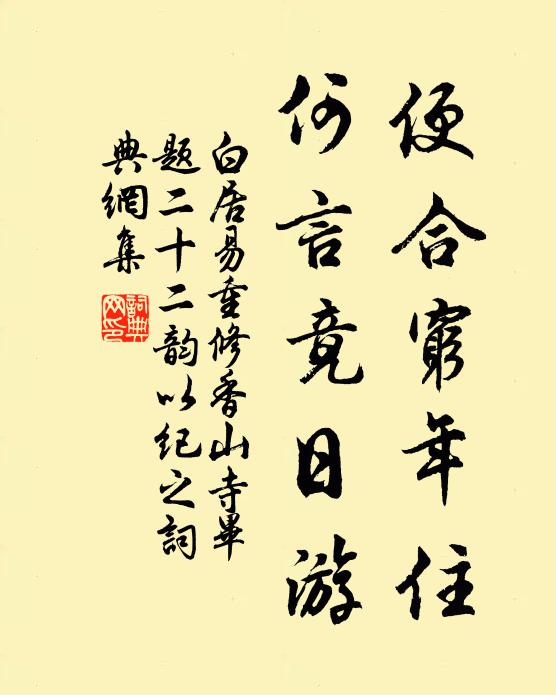 便合窮年住
何言竟日游
白居易重修香山寺畢
題二十二韵以纪之詞
典網集
詞典网印